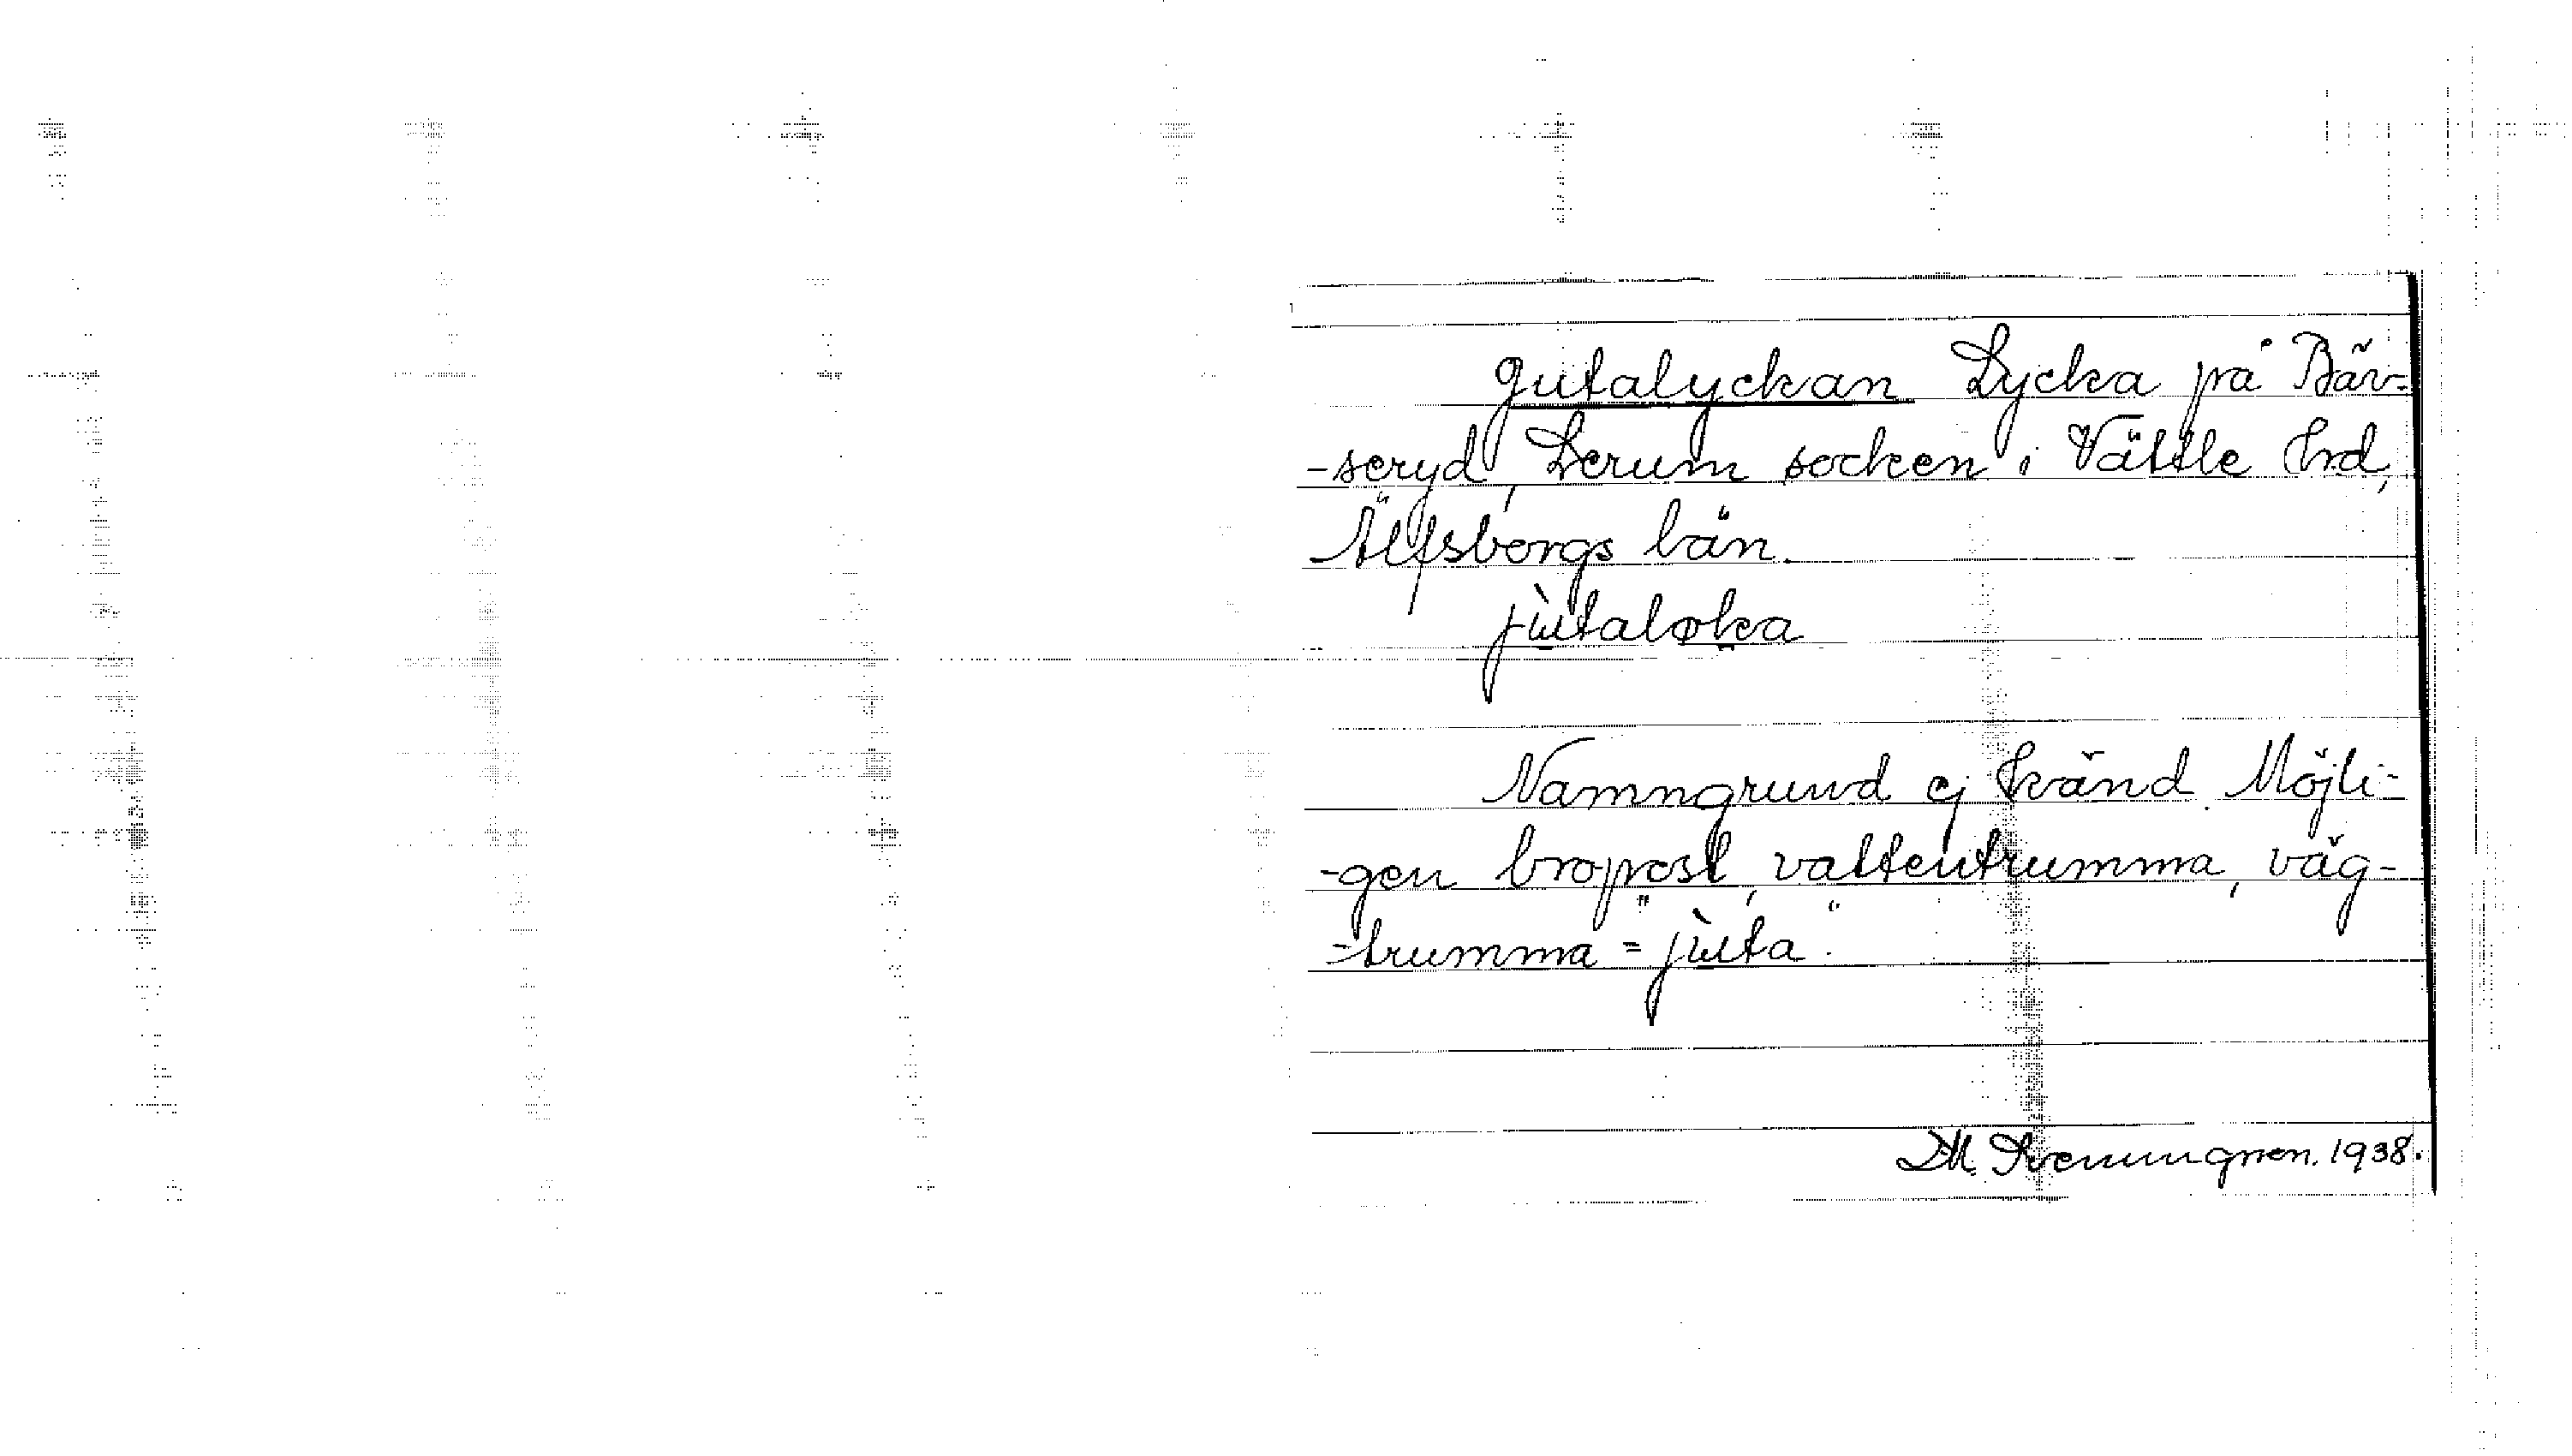 Gutalyckan Lycka på Bär-
-seryd, Lerum socken i Vättle hrd,
Älfsborgs län.
jùtaløka
Namngrund ej känd. Möjli-
-gen bropost, vattentrumma, väg-
-trumma = "jùta".
1938.